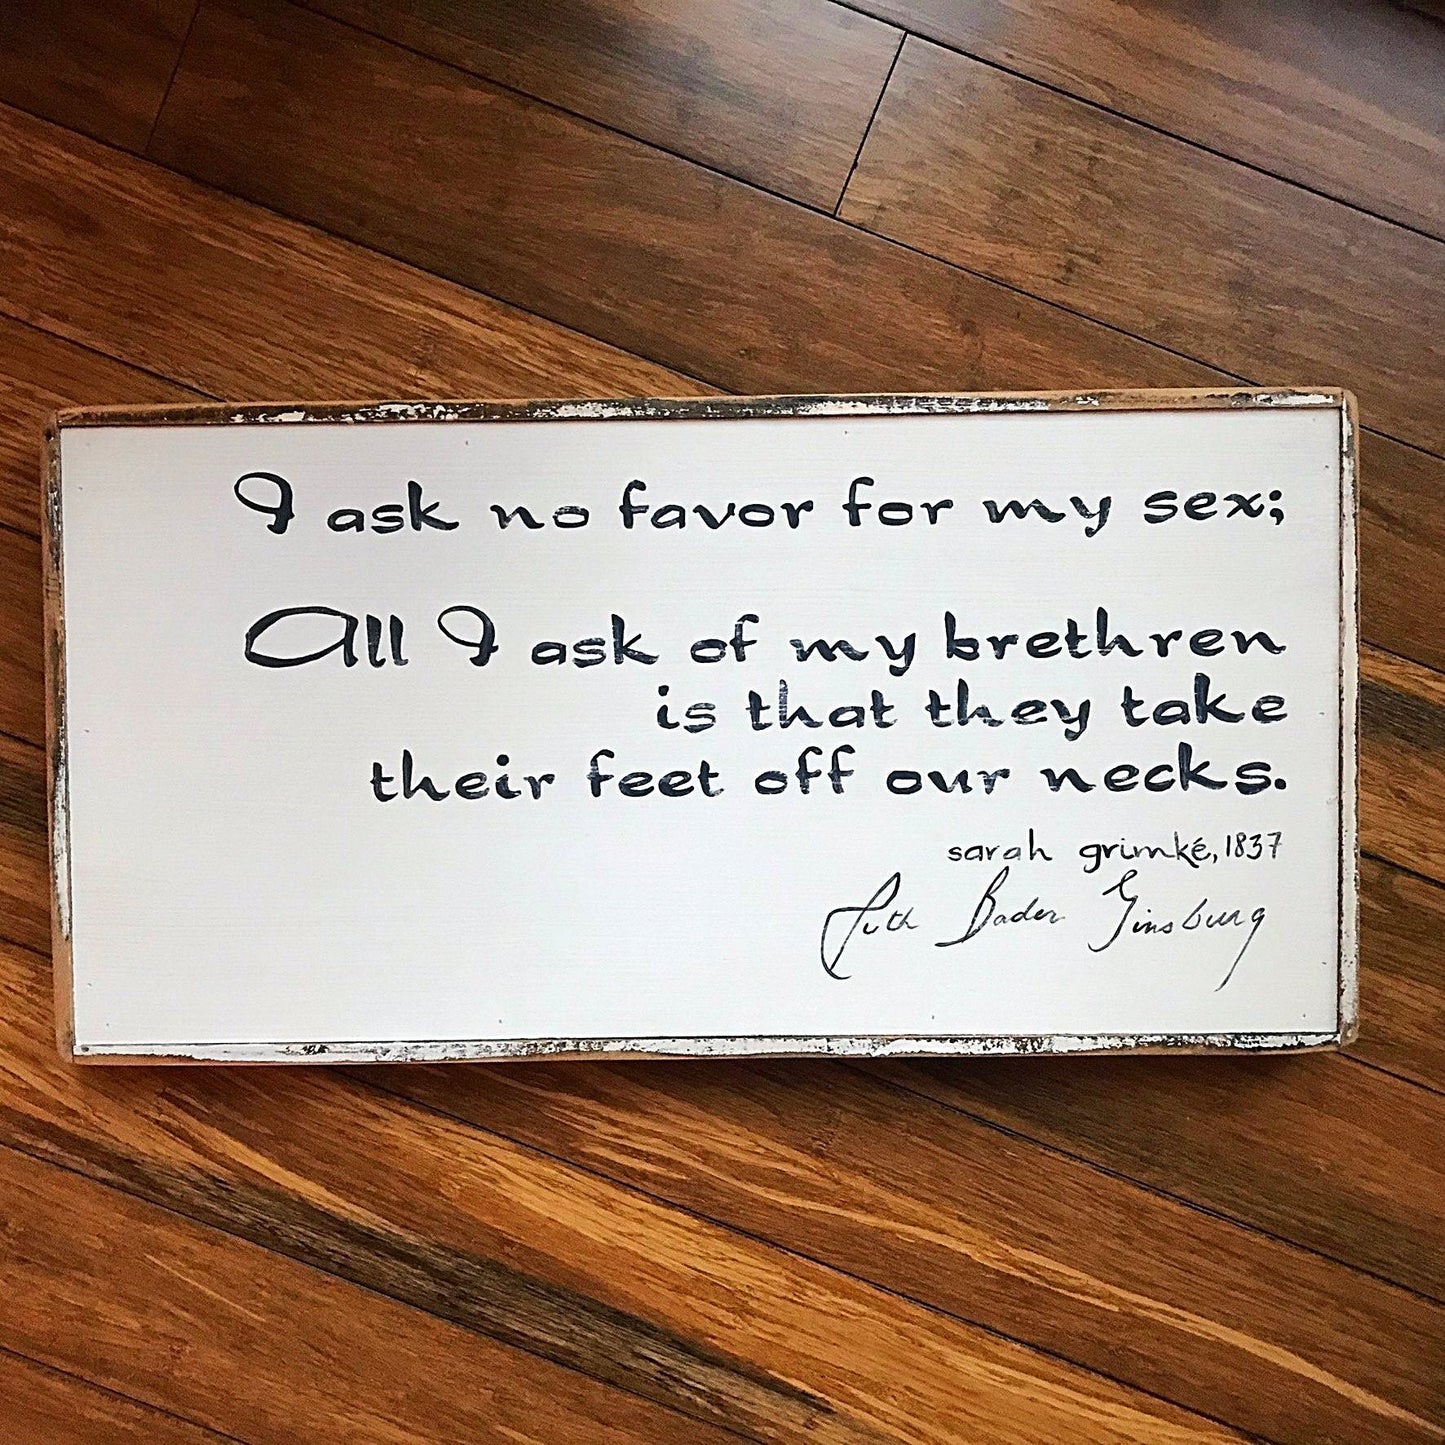 I ask no favor for my sex;
All I ask of my brethren
is that they take
their feet off our necks.
sarah grimké, 1837
Ruth Bader Ginsburg